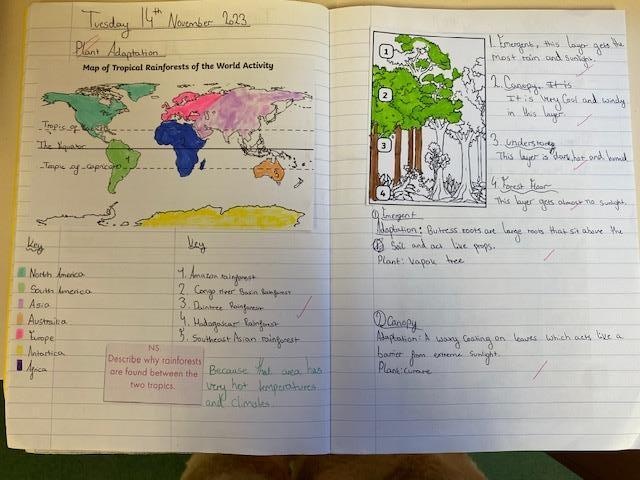 Tuesday 14th November 2023
Plant Adaptation
Map of Tropical Rainforests of the World Activity
Tropic of
The Equator
Tropic of capricorn
1
5
Key
North America
South America
Asia
Australia
Europe
Antartica
Africa
Key
1. Amazon rainforest
2. Congo river Basin Rainforest
3. Daintree Rainforest
4. Madagascar Rainforest
5. Southeast Asian rainforest
NS
Describe why rainforests
are found between the
two tropics.
Because that area has
very hot temperatures
and climates
1
2
3
4
1. Emergent, this layer gets the
most rain and sunlight.
2. Canopy. It is
It is very Cool and windy
in this layer.
3. understorey
This layer is dark, hot and humid
4. Forest floor
This layer gets almost no sunlight.
1 Emergent
Adaptation: Butress roots are large roots that sit above the
Soil and act like props.
Plant: Kapok tree
2 Canopy
Adaptation: A waxy Coating on leaves which acts like a
barrier from extreme sunlight.
Plant: Curare